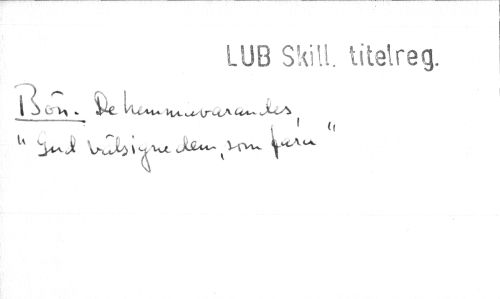 LUB Skill. titelreg.
Bön. De hemmavarandes,
"Gud välsigne dem, som fara"